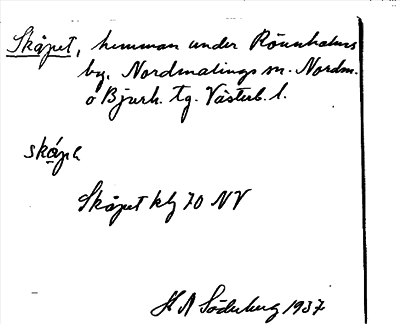 Skåpet, hemman under Rönnholms
by, Nordmalings sn. Nordm.
o Bjurh. tg. Västerb. l.
Skåpet kbl 70 NV
H N Söderberg 1937